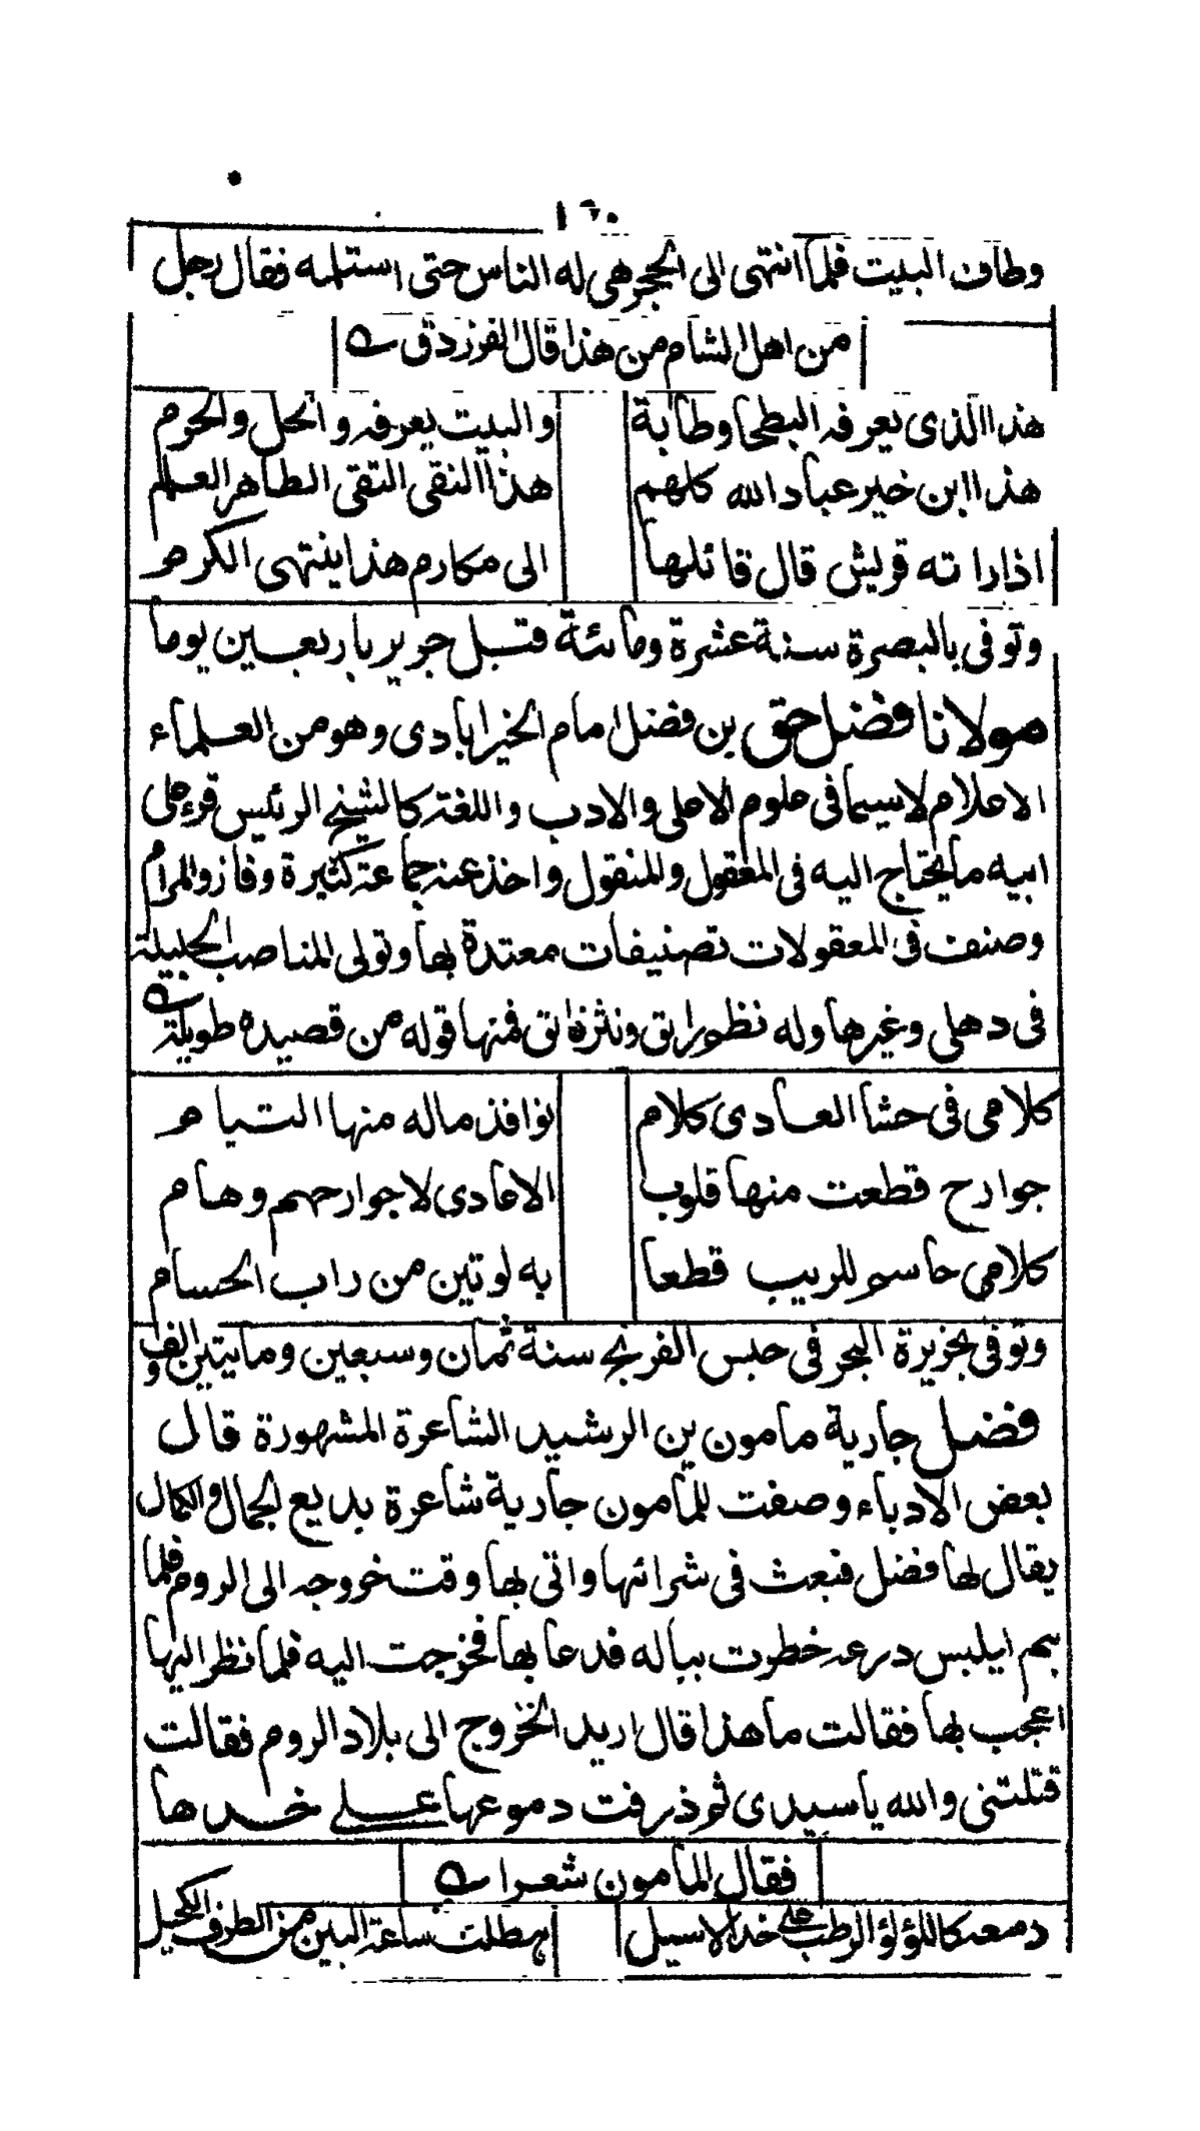 وطاف البيت فلما انتهى الى الحجر هى له الناس حتى استلمه فقال رجل
من اهل الشام من هذا قال الفرزدق
هذا الذى يعرفه البطحا وطابة والبيت يعرفه والحل والحرم
هذا ابن خير عباد الله كلهم هذا النقى التقى الطاهر العلم
اذا راته قريش قال قائلها الى مكارم هذا ينتهى الكرم
وتوفى بالبصرة سنة عشرة ومائة قبل جرير باربعين يوما
مولانا فضل حق بن فضل امام الخيرابادى وهو من العلماء
الاعلام لاسيما فى علوم الاعلى والادب واللغة كالشيخ الرئيس قرء على
ابيه ما يحتاج اليه فى المعقول والمنقول واخذ عنه جماعة كثيرة وفازوا المرام
وصنف فى المعقولات تصنيفات معتدة بها وتولى المناصب الجليلة
فى دهلى وغيرها وله نظم رايق ونثر فائق فمنها قوله من قصيده طويلة
كلامى فى حشا العادى كلام نوافذ ماله منها التيام
جوارح قطعت منها قلوب الاعادى لا جوارحهم وهام
كلامى حاسم للريب قطعا به لوتين من راب الحسام
وتوفى بجزيرة البحر فى حبس الفرنج سنة ثمان وسبعين ومايتين والف
فضل جارية مامون بن الرشيد الشاعرة المشهورة قال
بعض الادباء وصفت للمأمون جارية شاعرة بديع الجمال والكمال
يقال لها فضل فبعث فى شرائها واتى بها وقت خروجه الى الروم فلما
هم ليلبس درعه خطرت بباله فدعا بها فخرجت اليه فلما نظر اليها
اعجب بها فقالت ما هذا قال اريد الخروج الى بلاد الروم فقالت
قتلتنى والله يا سيدى ثم ذرفت دموعها على خدها
فقال المأمون شعرا
دمعه كاللؤلؤ الرطب على خد الاسيل هطلت ساعة البين من الطرف الكحيل